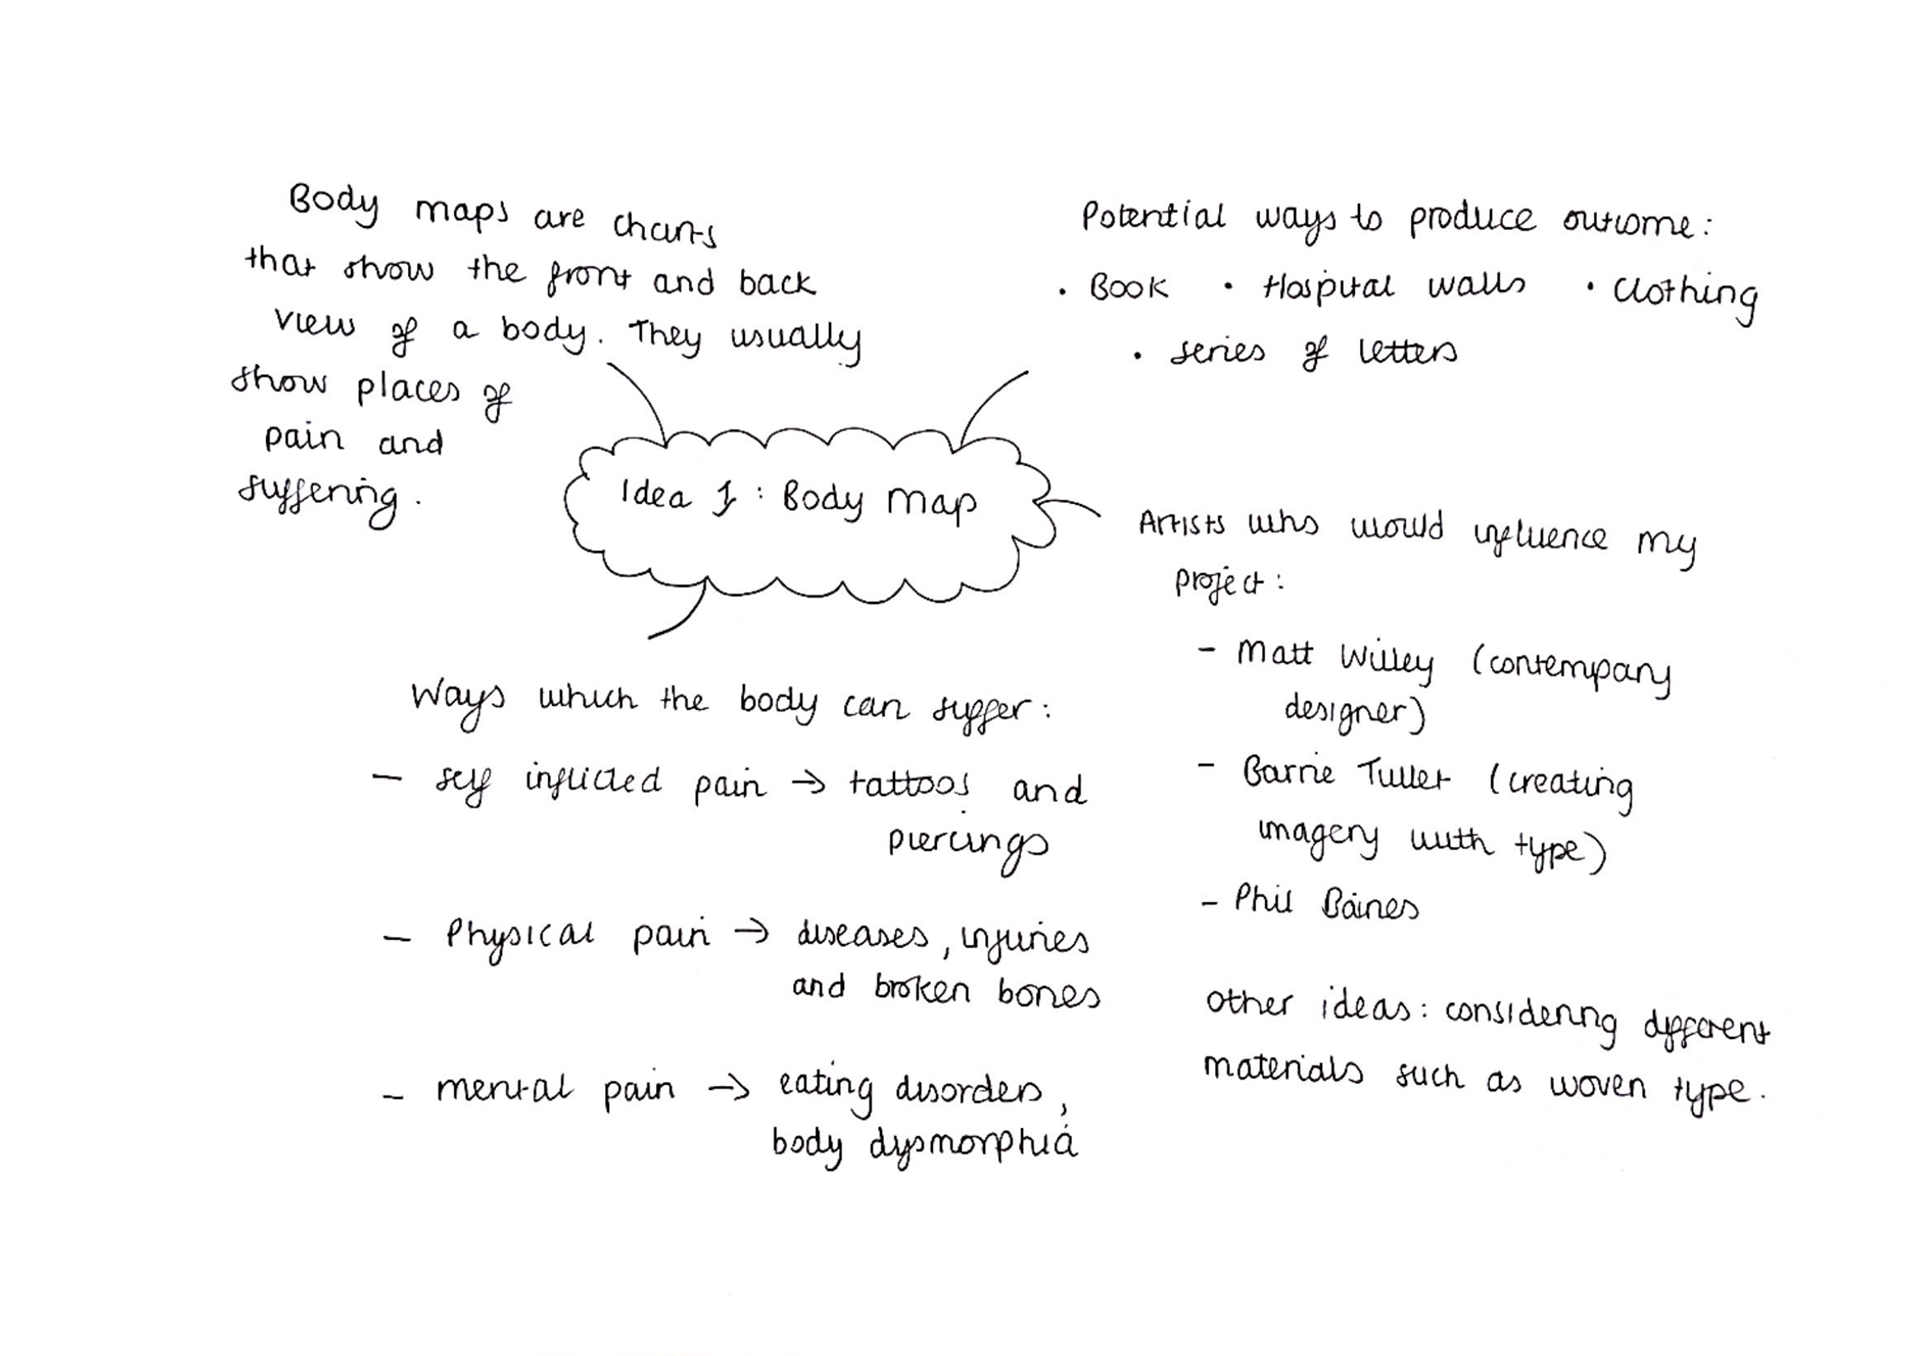 Body maps are charts
that show the front and back
view of a body. They usually
show places of
pain and
suffering.
Potential ways to produce outcome:
· Book · Hospital walls · Clothing
· series of letters
Idea 1 : Body map
Artists who would influence my
project:
- Matt Willey (contempary
designer)
- Barrie Tullet (creating
imagery with type)
- Phil Baines
other ideas: considering different
materials such as woven type.
Ways which the body can suffer:
- self inflicted pain → tattoos and
piercings
- Physical pain → diseases, injuries
and broken bones
- mental pain → eating disorders,
body dysmorphia